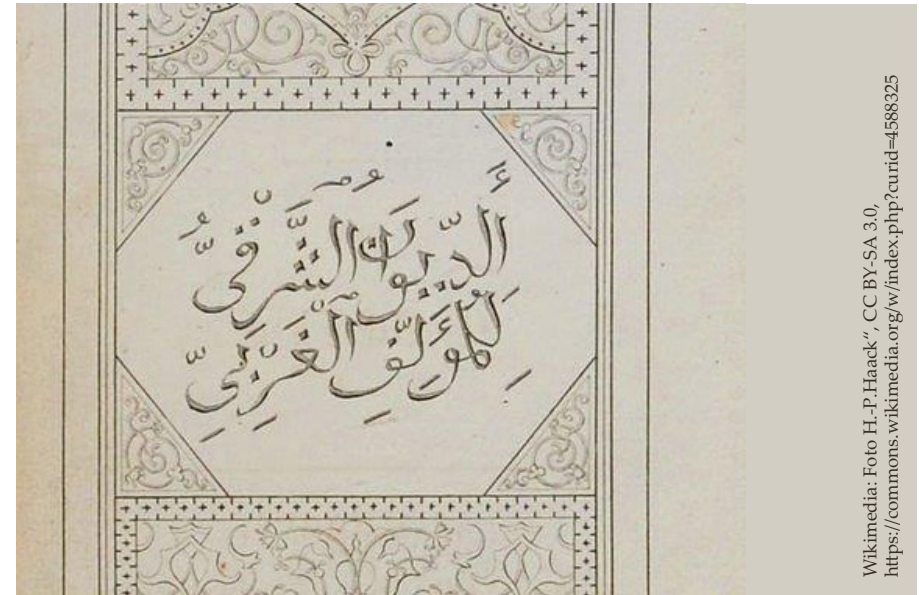 أَلدِّيوَانُ الشَّرْقِيُّ
لِلْمُؤَلِّفِ الْغَرْبِيِّ
Wikimedia: Foto H.-P.Haack“, CC BY-SA 3.0,
https://commons.wikimedia.org/w/index.php?curid=4588325